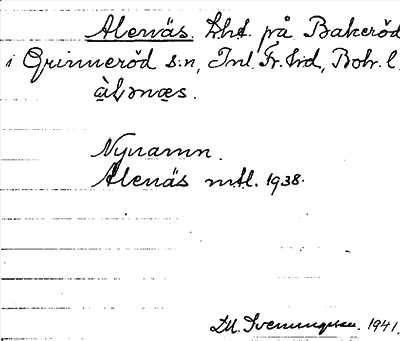 Alenäs. Lht. på Bakeröd
i Grinneröd s:n, Inl. Fr. hd, Boh. l.
àlənæs.
Nynamn.
Alenäs mtl. 1938.
D.H. Svenningsson. 1941.